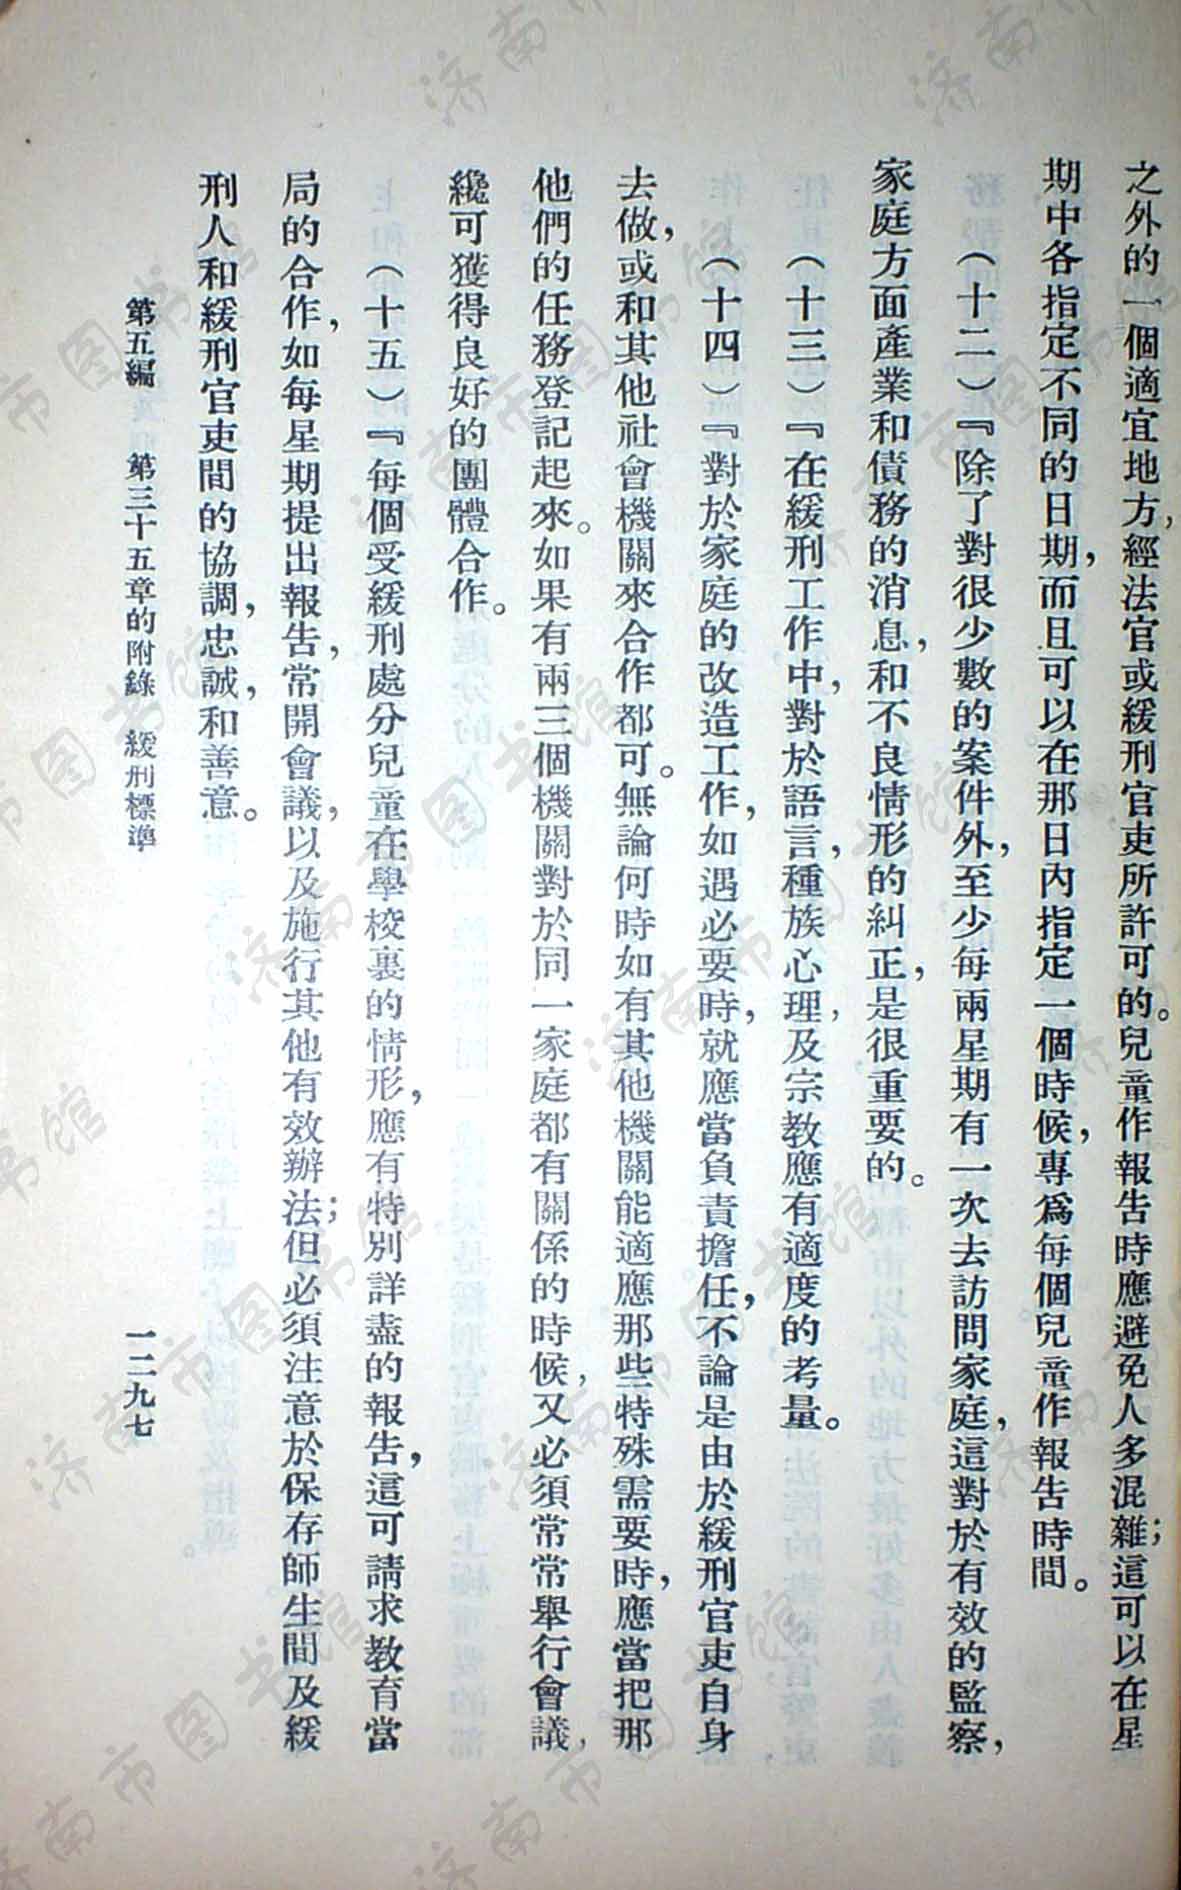 之外的一個適宜地方，經法官或緩刑官吏所許可的。兒童作報告時應避免人多混雜；這可以在星
期中各指定不同的日期，而且可以在那日內指定一個時候，專爲每個兒童作報告時間。
（十二）『除了對很少數的案件外，至少每兩星期有一次去訪問家庭，這對於有效的監察，
家庭方面產業和債務的消息，和不良情形的糾正，是很重要的。
（十三）『在緩刑工作中，對於語言，種族心理，及宗教應有適度的考量。
（十四）『對於家庭的改造工作，如遇必要時，就應當負責擔任，不論是由於緩刑官吏自身
去做，或和其他社會機關來合作都可。無論何時如有其他機關能適應那些特殊需要時，應當把那
他們的任務登記起來。如果有兩三個機關對於同一家庭都有關係的時候，又必須常常舉行會議，
纔可獲得良好的團體合作。
（十五）『每個受緩刑處分兒童在學校裏的情形，應有特別詳盡的報告，這可請求教育當
局的合作，如每星期提出報告，常開會議，以及施行其他有效辦法；但必須注意於保存師生間及緩
刑人和緩刑官吏間的協調，忠誠，和善意。
第五編 第三十五章的附錄 緩刑標準
一二九七
济南市图书馆